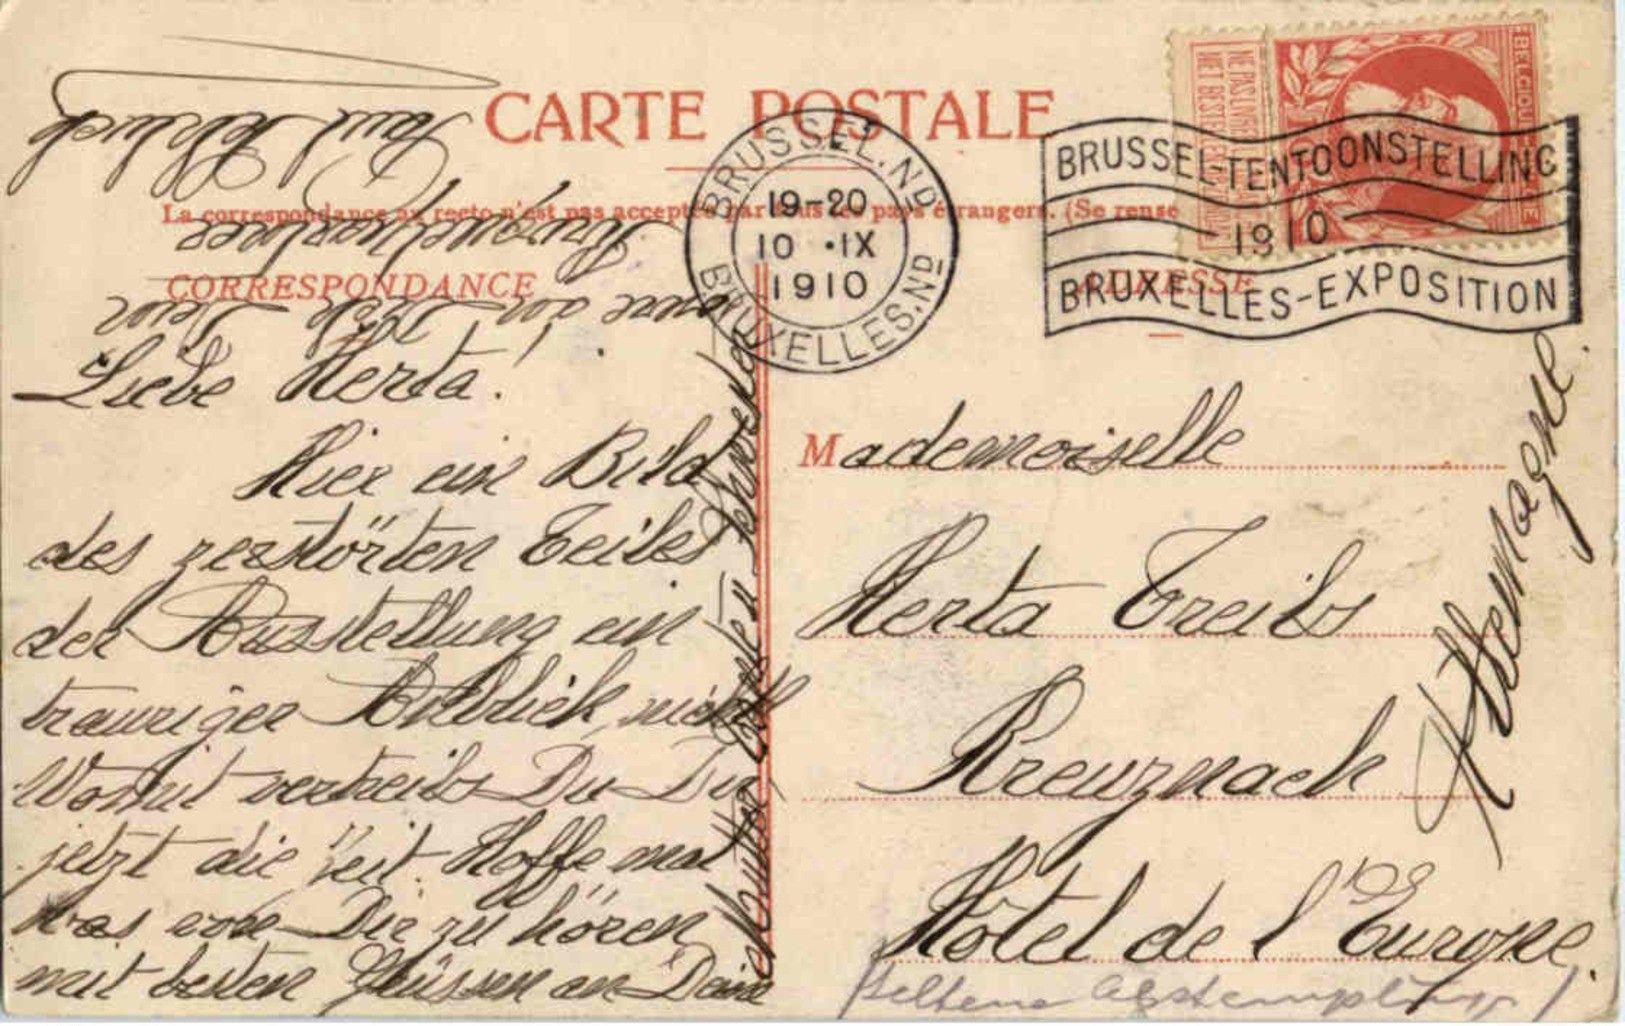 CARTE POSTALE
La correspondance au recto n'est pas acceptée par tous les pays étrangers. (Se rense
CORRESPONDANCE
ADRESSE
BRUSSEL.ND
19-20
10 ·IX
1910
BRUXELLES.ND
BRUSSEL-TENTOONSTELLING
1910
BRUXELLES-EXPOSITION
NE PAS LIVRER
NIET BESTELLEN
Liebe Herta!
Hier ein Bild
des zerstörten Teiles
der Ausstellung ein
trauriger Anblick, nicht
Womit vertreibs Du Dir
jetzt die Zeit. Hoffe mal
was von Dir zu hören
mit besten Grüssen an Deine
Mutter
sowie an Dich Dein
und
Mademoiselle
Herta Treibs
Kreuznach
Hôtel de l'Europe.
Allemagne.
Seltene Abstemplung!